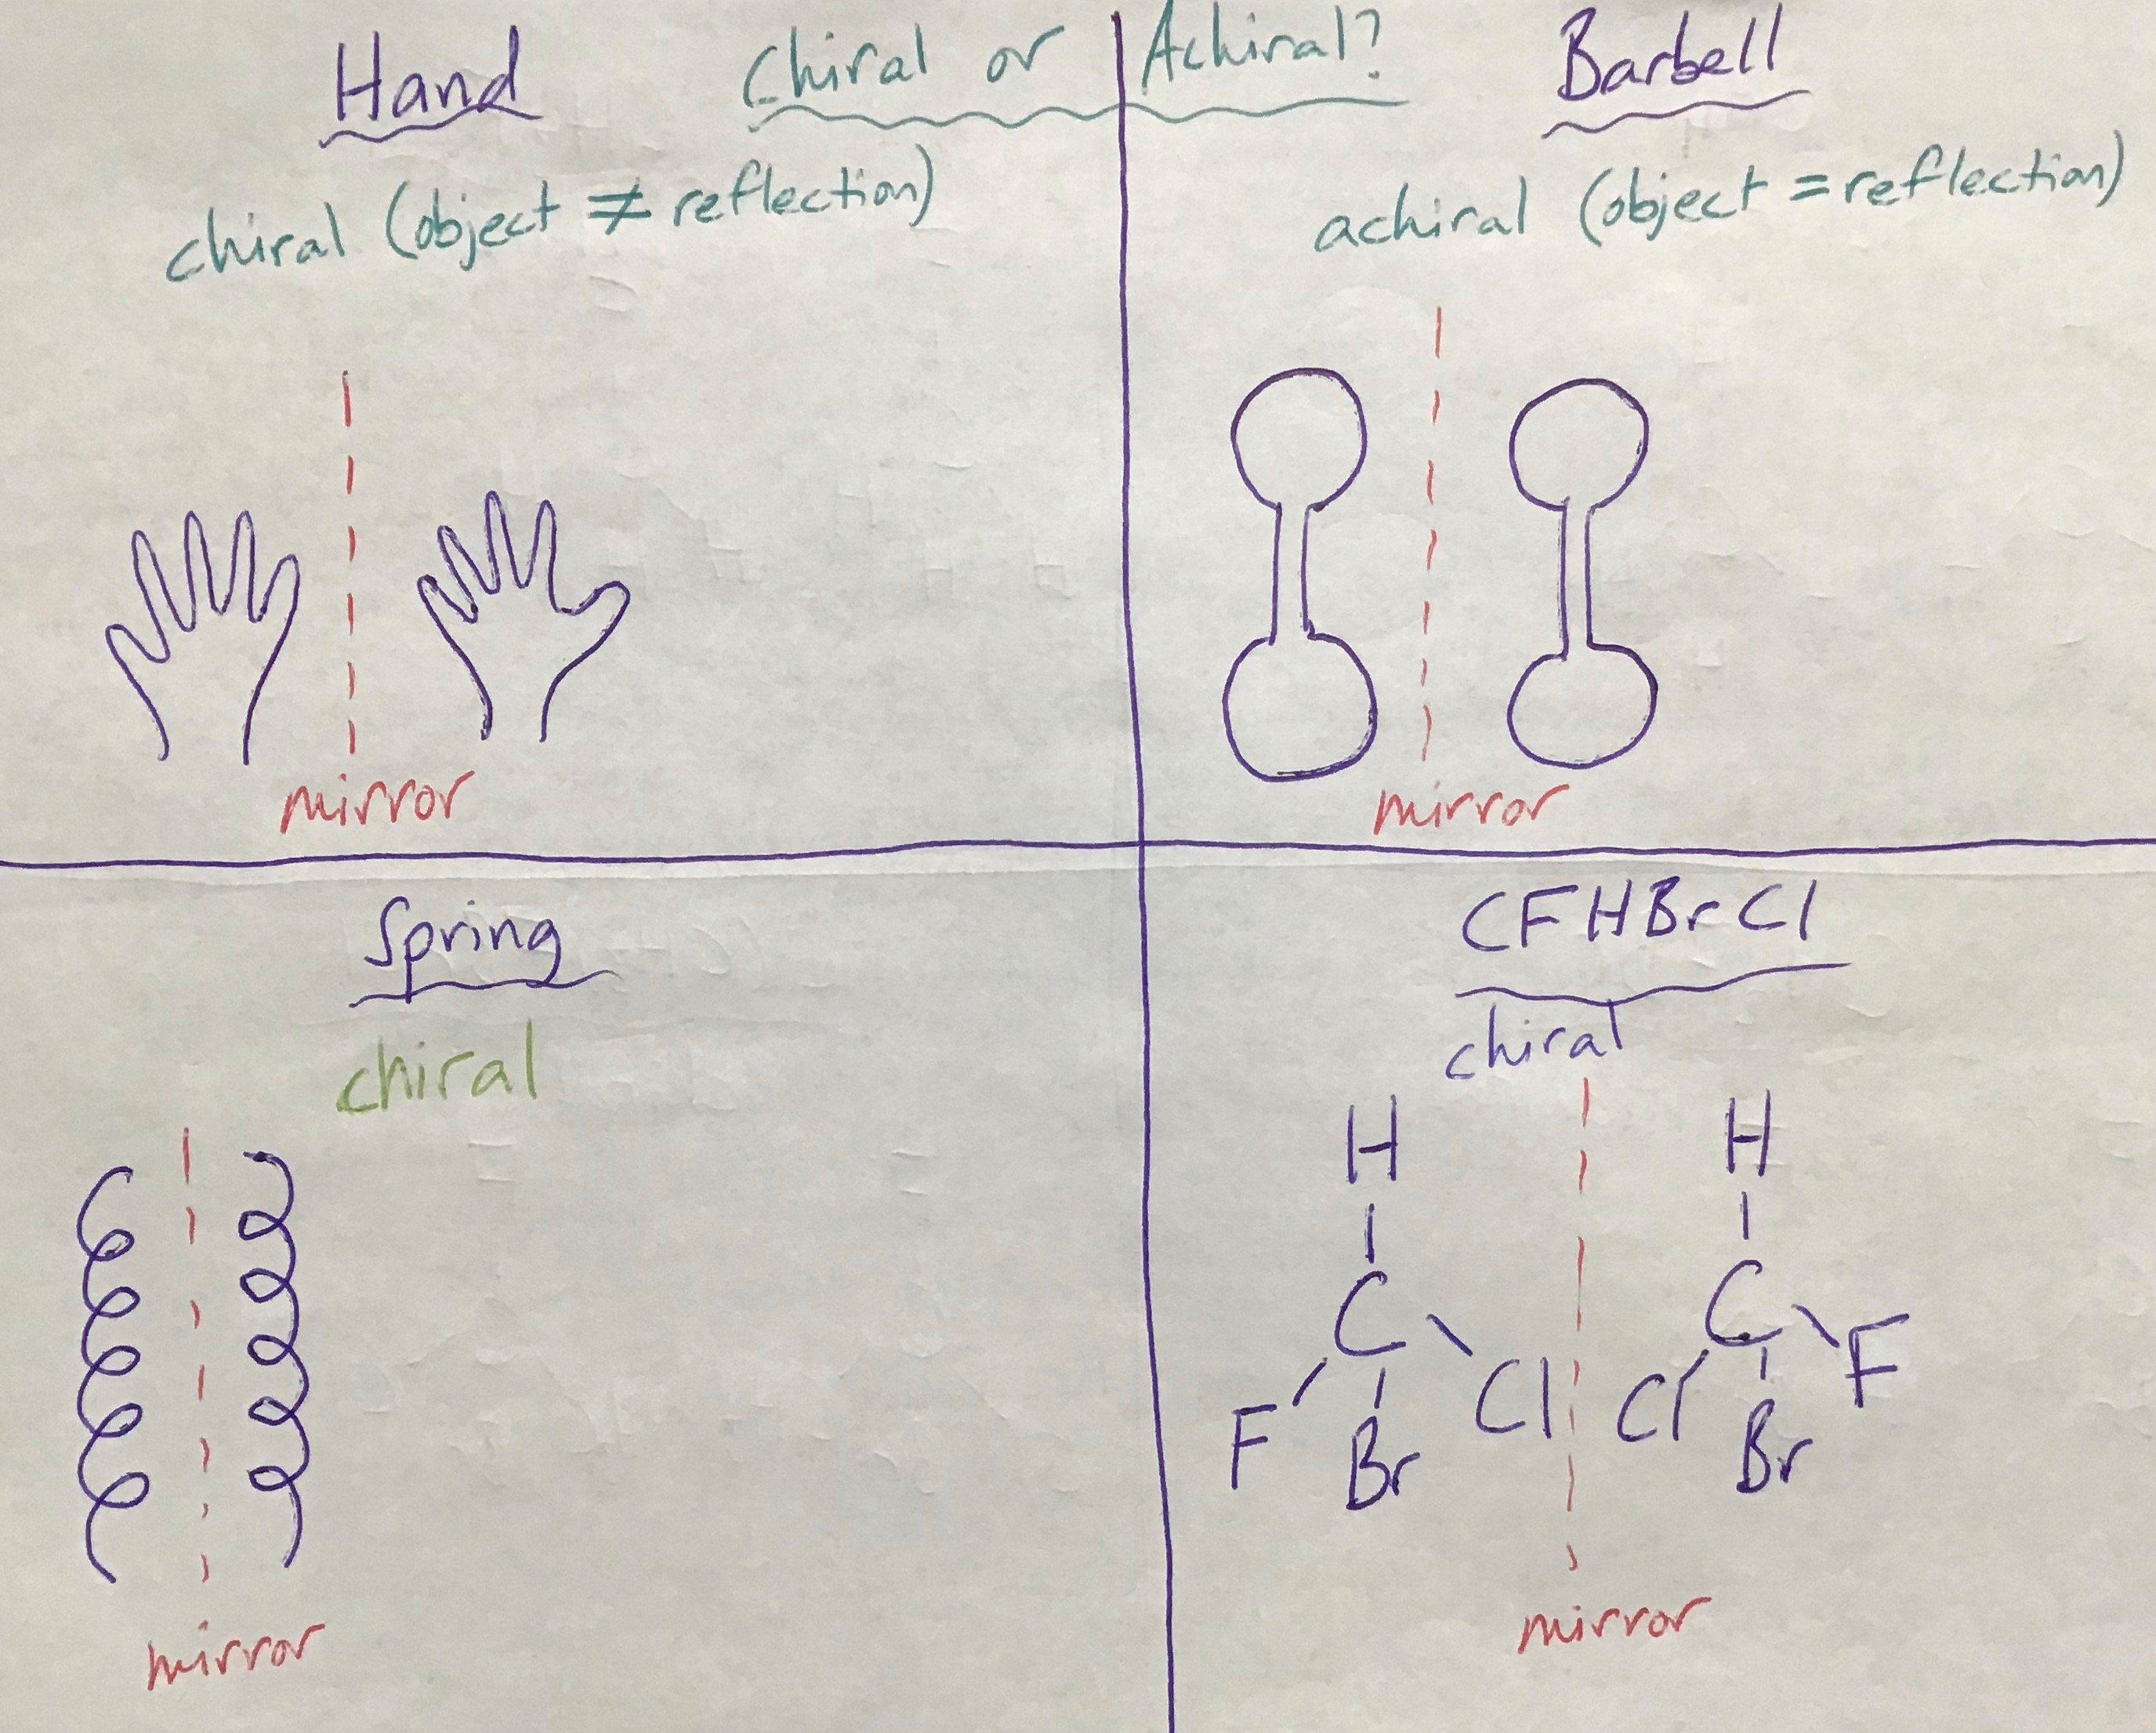 Chiral or Achiral?
Hand
chiral (object ≠ reflection)
mirror
Barbell
achiral (object = reflection)
mirror
Spring
chiral
mirror
CFHBrCl
chiral
H H
C C
F Br Cl Cl Br F
mirror